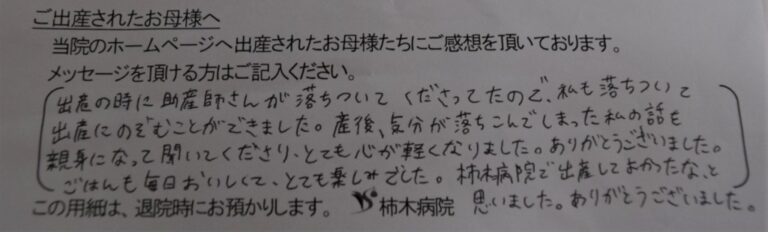 ご出産されたお母様へ
当院のホームページへ出産されたお母様たちにご感想を頂いております。
メッセージを頂ける方はご記入ください。
出産の時に助産師さんが落ちついてくださってたので、私も落ちついて
出産にのぞむことができました。産後、気分が落ちこんでしまった私の話を
親身になって聞いてくださり、とても心が軽くなりました。ありがとうございました。
ごはんも毎日おいしくて、とても楽しみでした。柿木病院で出産してよかったな、と
思いました。ありがとうございました。
この用紙は、退院時にお預かりします。 柿木病院